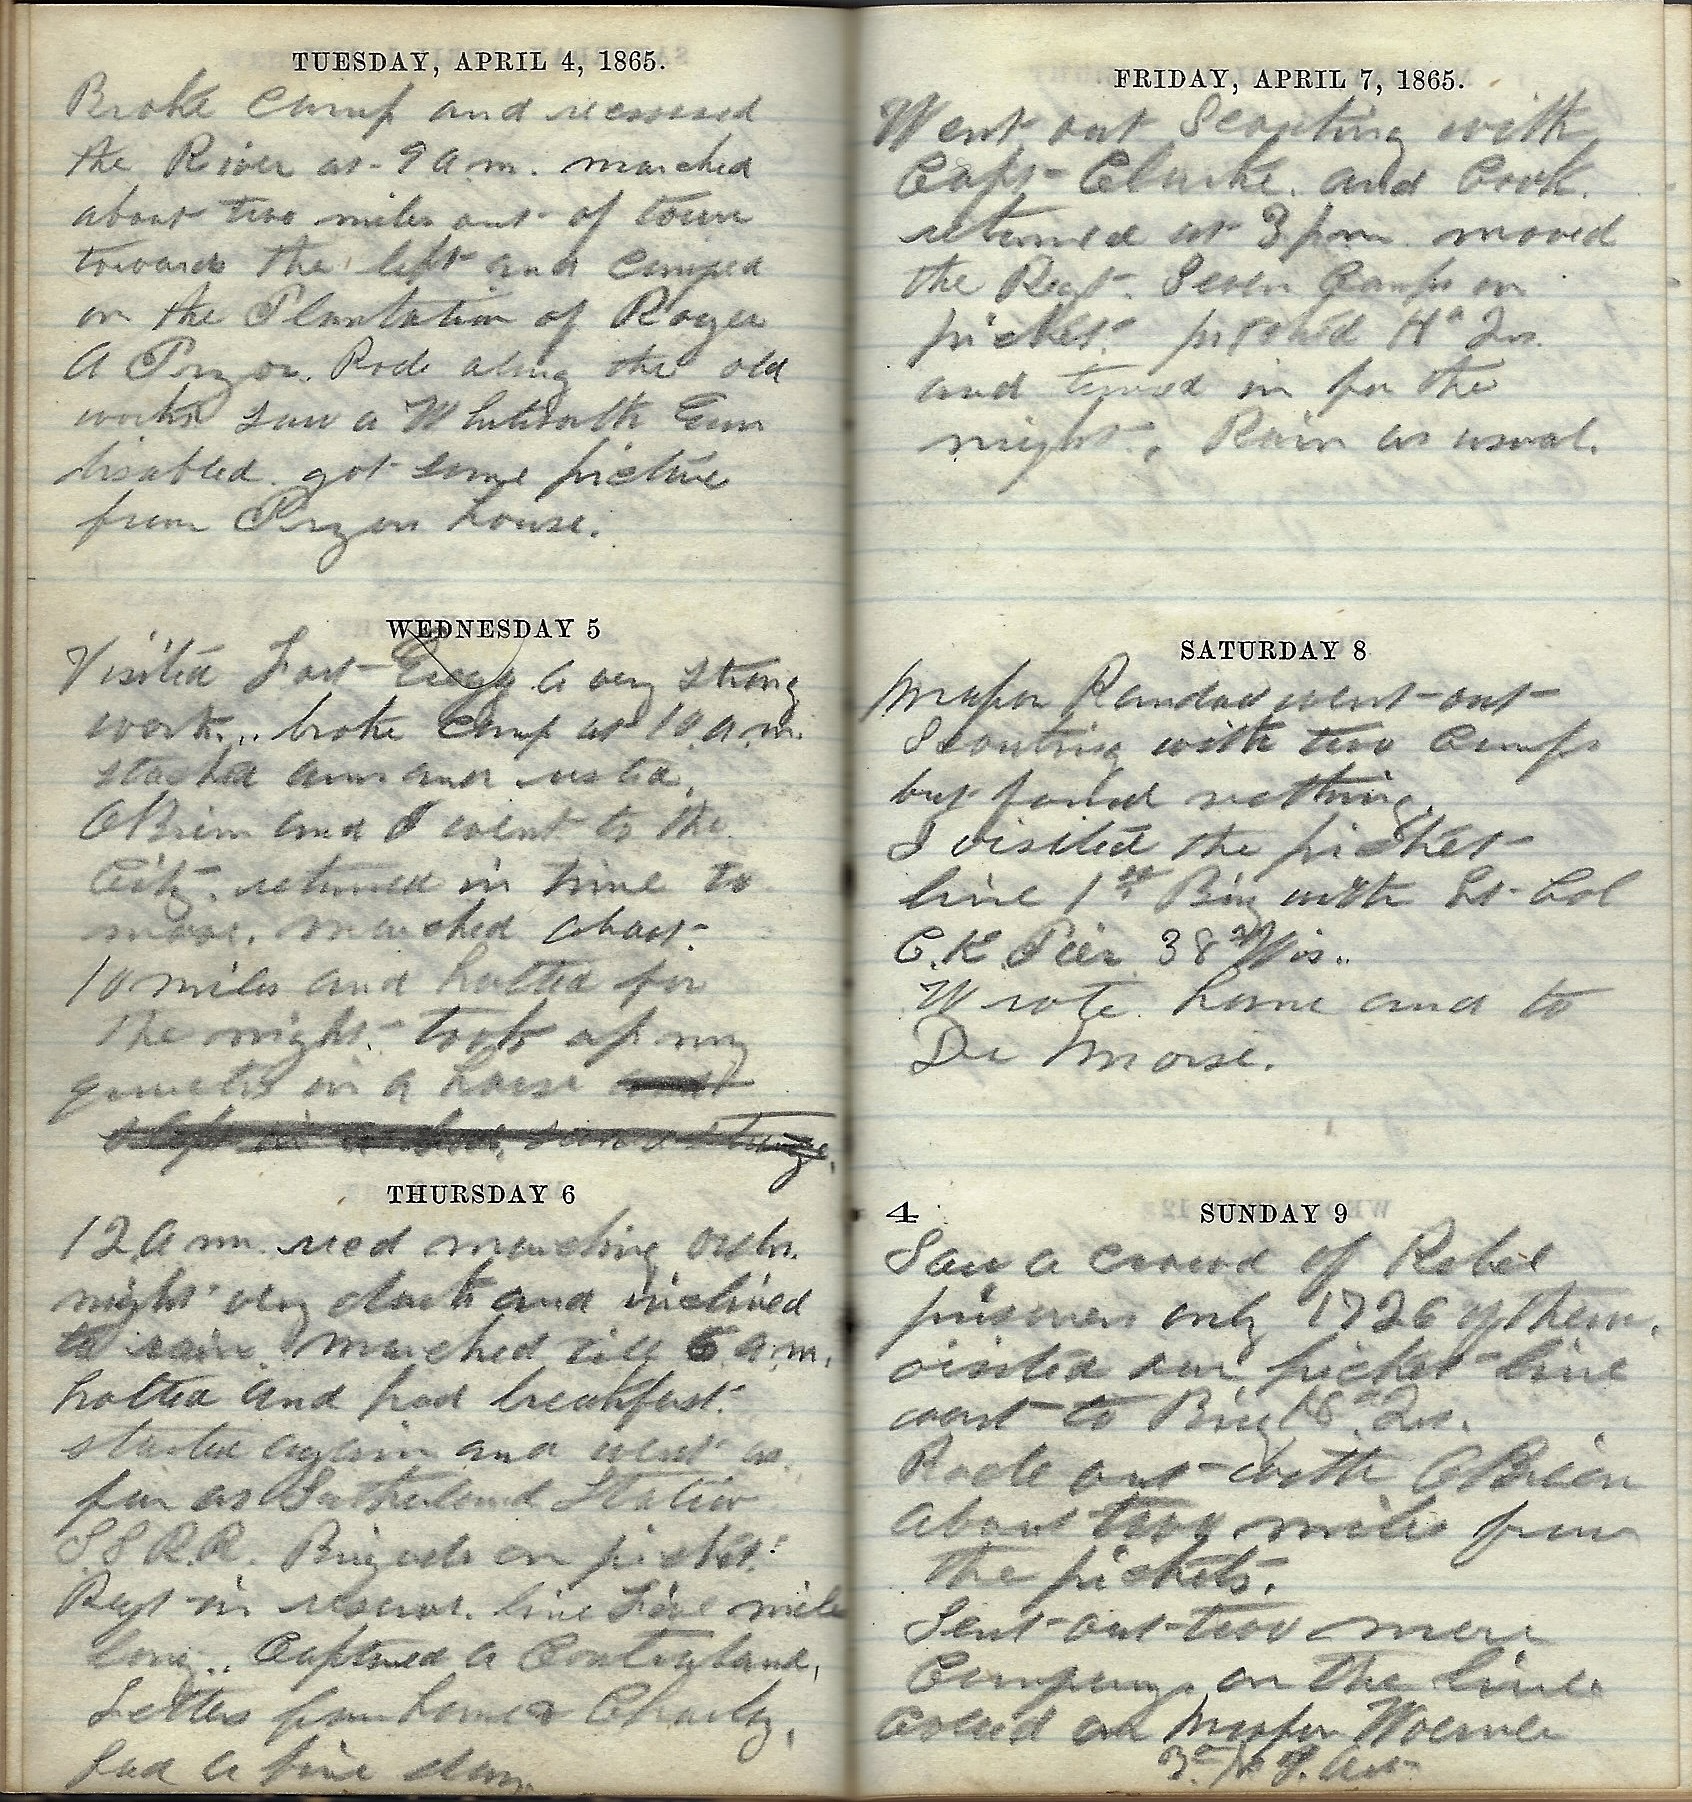 TUESDAY, APRIL 4, 1865.
Broke Camp and recrossed
the River at 9 a.m. marched
about two miles out of town
towards the left and camped
on the Plantation of Roger
A Pryor. Rode along the old
works saw a Whitworth Gun
disabled. got some picture
from Pryon house.
WEDNESDAY 5
Visited Fort Gregg a very strong
work.. broke camp at 10 a.m.
stacked arms and rested.
OBrien and I went to the
City. returned in time to
move. marched about
10 miles and halted for
the night. took up my
quarters in a house and
slept in a
THURSDAY 6
12 a.m. recd marching orders.
night very dark and inclined
to rain. marched till 5 a.m.
halted and had breakfast.
started again and went as
far as Sutherland Station
S.S.R.R. Brigade on picket.
Regt in reserve. line Five mile
long.. Captured a Contraband,
Letters from home & Charley,
had a fine sleep
FRIDAY, APRIL 7, 1865.
Went out Scouting with
Capt Clarke. and Cook.
returned at 3 pm. moved
the Regt. Seven Comps on
picket. pitched Hd Qrs.
and turned in for the
night. Rain as usual.
SATURDAY 8
Major Randall went out
Scouting with two Comps
but found nothing.
I visited the picket
line 1st Brig with Lt Col
C.K. Pier 38th Wis..
Wrote home and to
Dr Morse.
4 SUNDAY 9
Saw a crowd of Rebel
prisoners only 1726 of them.
visited our picket line
went to Brig Hd Qrs.
Rode out with OBrien
about two miles from
the pickets.
Sent out two more
Companys on the line
called on Major Woerner
3rd N.J. Art